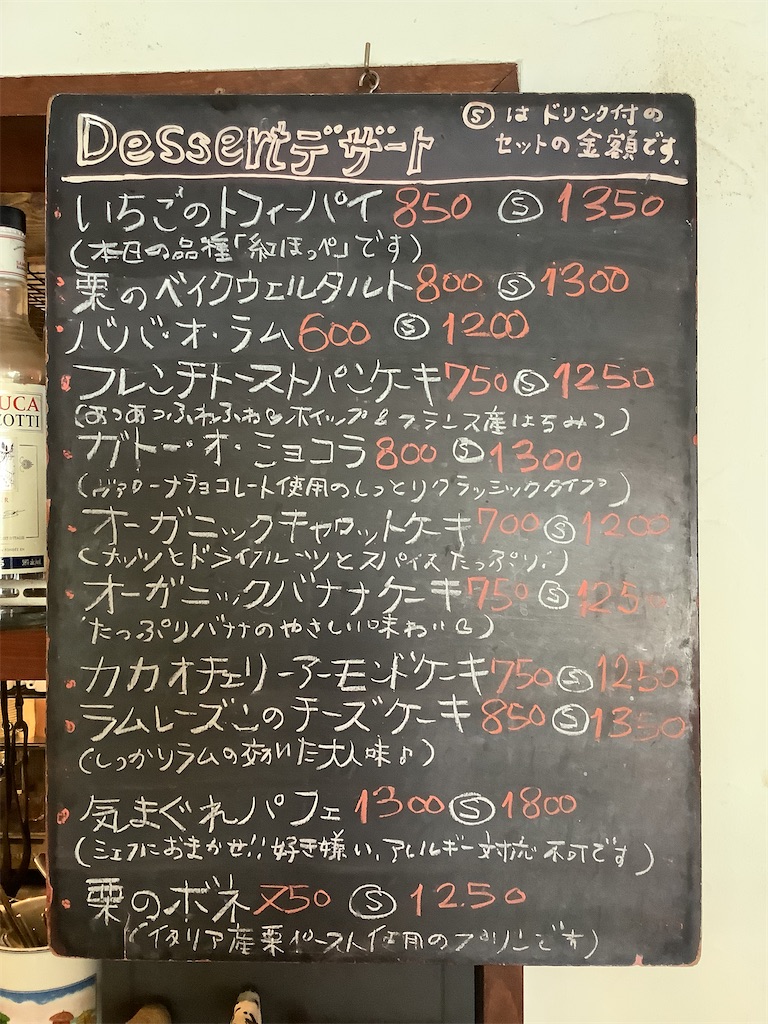 Dessert デザート
Ⓢ は ドリンク付の
セットの金額です.
いちごのトフィーパイ 850 Ⓢ 1350
(本日の品種「紅ほっぺ」です)
栗のベイクウェルタルト 800 Ⓢ 1300
ババ・オ・ラム 600 Ⓢ 1200
フレンチトーストパンケーキ 750 Ⓢ 1250
(あつあつふわふわ♡ホイップ&フランス産はちみつ)
ガトー・オ・ショコラ 800 Ⓢ 1300
(ヴァローナチョコレート使用のしっとりクラッシックタイプ)
オーガニックキャロットケーキ 700 Ⓢ 1200
(ナッツとドライフルーツとスパイスたっぷり!)
オーガニックバナナケーキ 750 Ⓢ 1250
(たっぷりバナナのやさしい味わい)
カカオチェリーアーモンドケーキ 750 Ⓢ 1250
ラムレーズンのチーズケーキ 850 Ⓢ 1350
(しっかりラムの効いた大人味♪)
気まぐれパフェ 1300 Ⓢ 1800
(シェフにおまかせ!!好き嫌い、アレルギー対応不可です)
栗のボネ 750 Ⓢ 1250
(イタリア産栗ペースト使用のプリンです)
UCA
OTTI